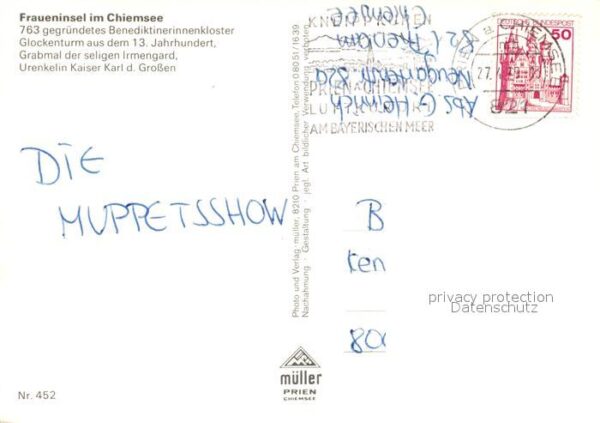 Fraueninsel im Chiemsee
763 gegründetes Benediktinerinnenkloster
Glockenturm aus dem 13. Jahrhundert,
Grabmal der seligen Irmengard,
Urenkelin Kaiser Karl d. Großen
DIE
MUPPETSSHOW
Nr. 452
Photo und Verlag: müller, 8210 Prien am Chiemsee, Telefon 08051/1639
Nachahmung · Gestaltung · jegl. Art bildlicher Verwendung verboten
müller
PRIEN
CHIEMSEE
PRIEN A CHIEMSEE
LUFT
AM BAYERISCHEN MEER
Abs G Heinrich
Chiemsee
DEUTSCHE BUNDESPOST
50
CHIEMSEE
821
B
ken
800
privacy protection
Datenschutz